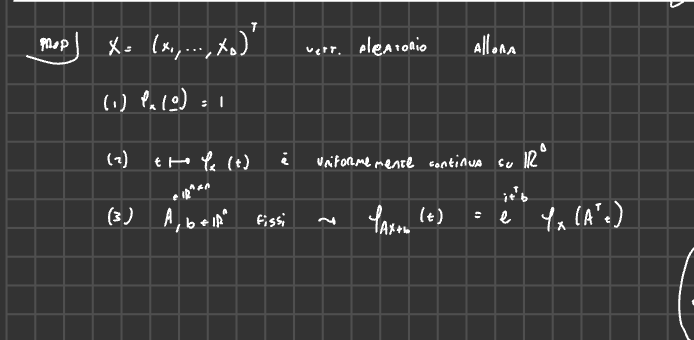 PROP X = (x₁, ..., x_D)ᵀ vett. aleatorio Allora
(1) φₓ(0) = 1
(2) t ↦ φₓ(t) è uniformemente continua su ℝᴰ
(3) A, b ∈ ℝⁿ fissi ⇝ φ_{AX+b}(t) = e^{itᵀb} φₓ(Aᵀt)